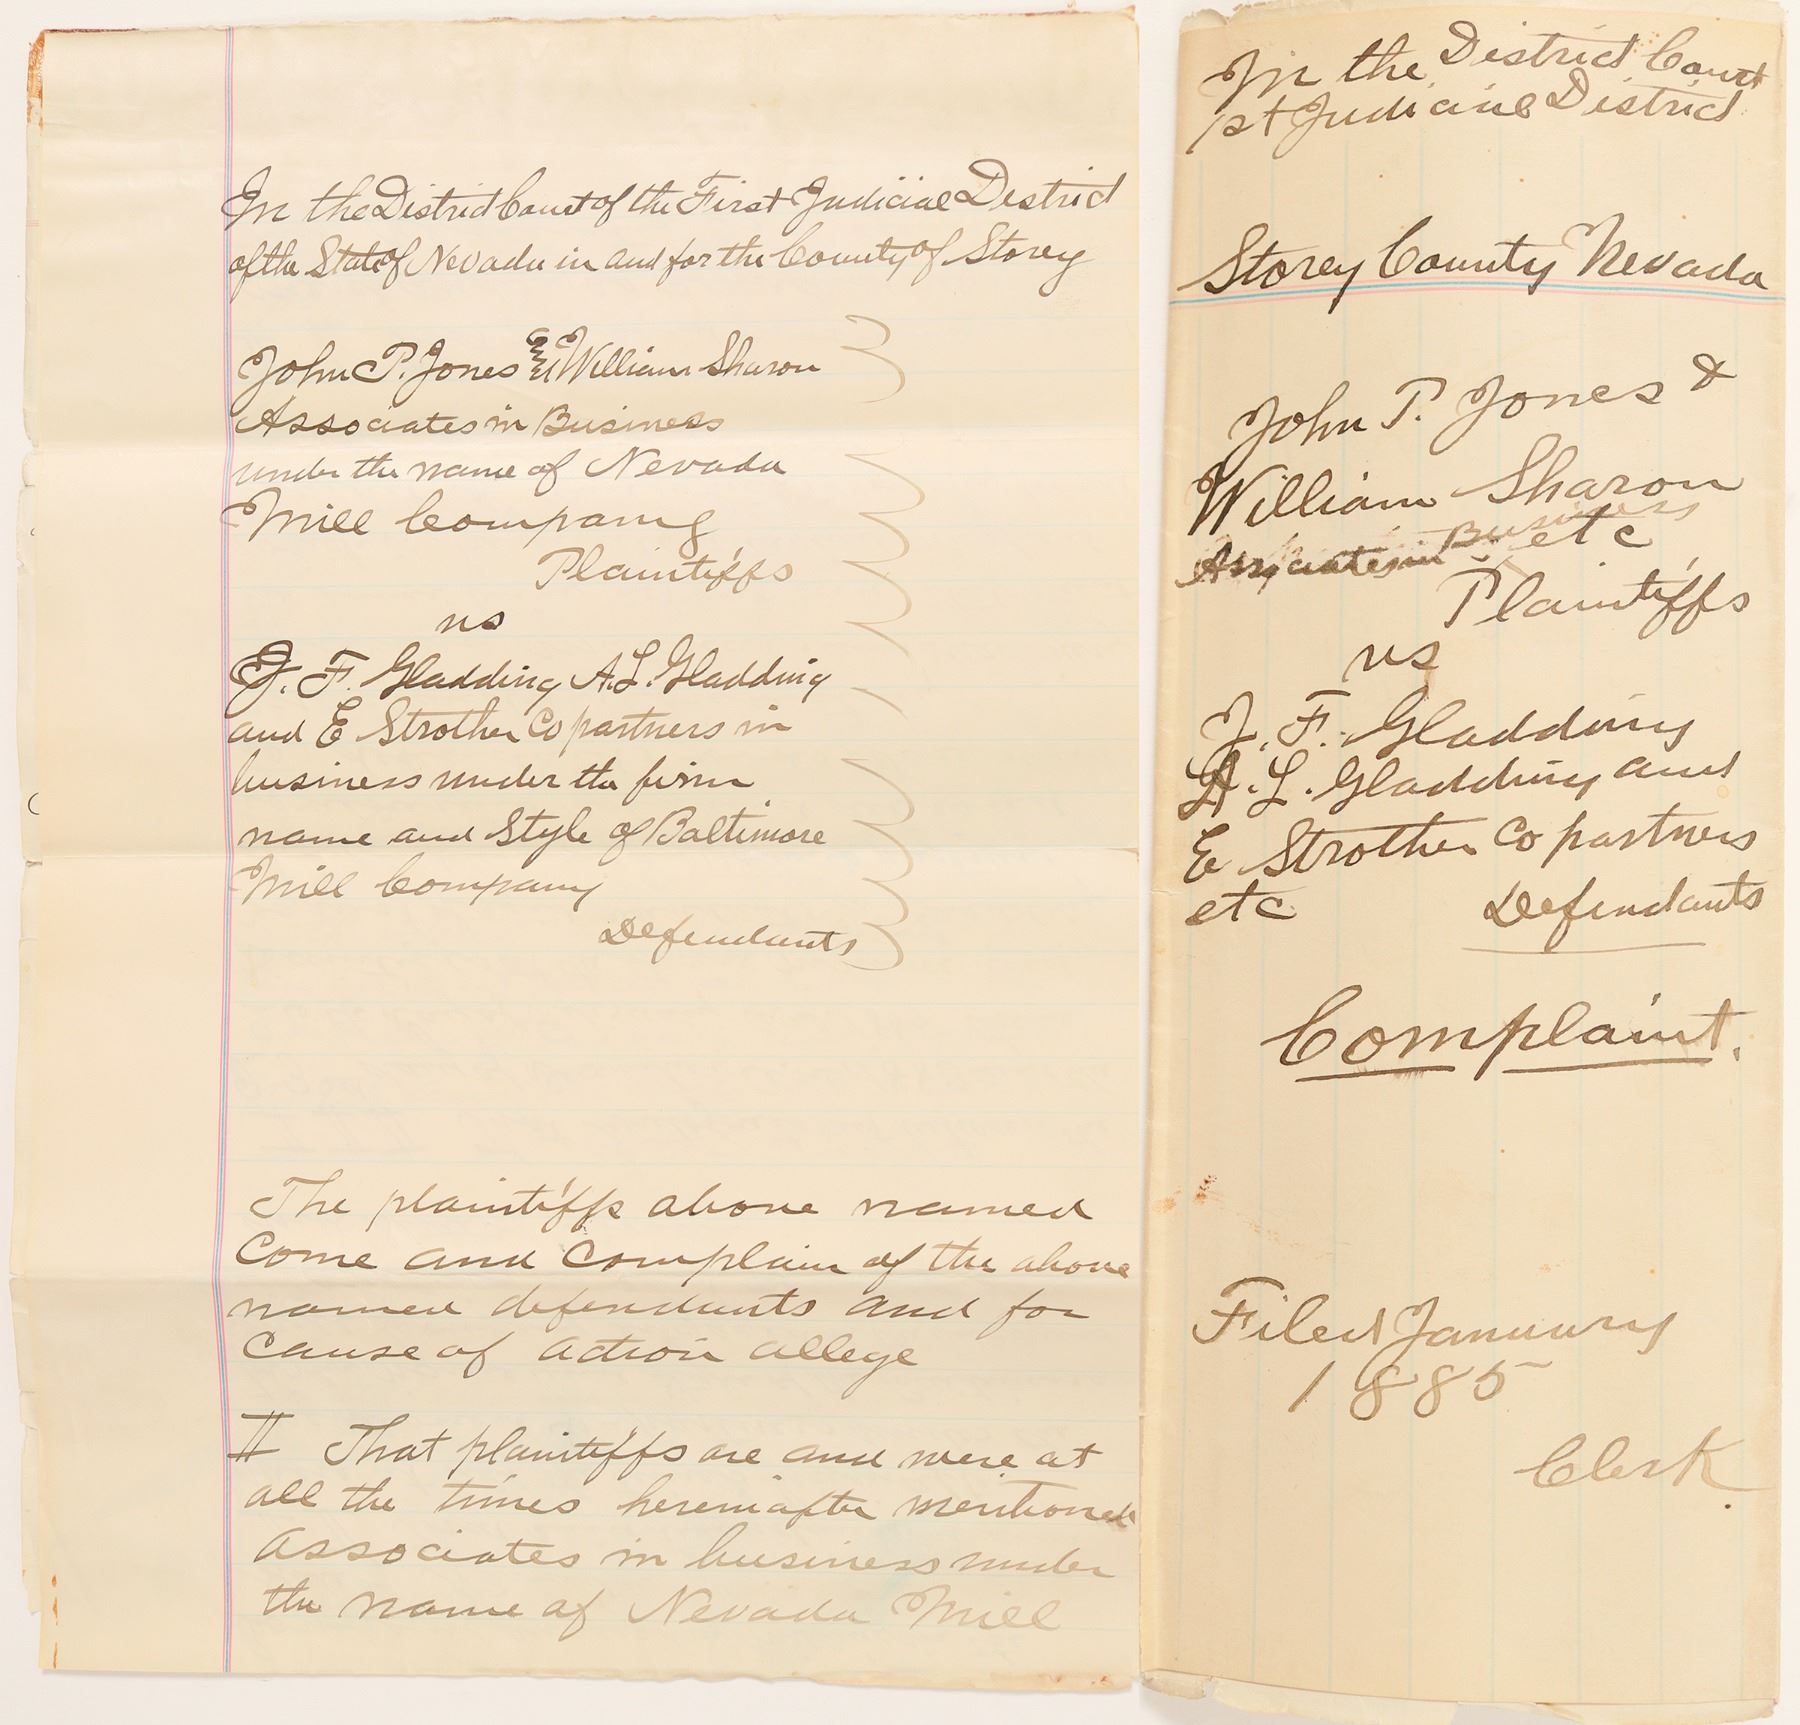 In the District Court of the First Judicial District
of the State of Nevada in and for the County of Storey
John P. Jones & William Sharon
Associates in Business
under the name of Nevada
Mill Company
Plaintiffs
vs
J. F. Gladding, A. L. Gladding
and E Strother Co partners in
business under the firm
name and Style of Baltimore
Mill Company
Defendants
The plaintiffs above named
Come and Complain of the above
named defendants and for
cause of action allege
II That plaintiffs are and were at
all the times hereinafter mentioned
associates in business under
the name of Nevada Mill
In the District Court
1st Judicial District
Storey County Nevada
John P. Jones &
William Sharon
Associates in Business etc
Plaintiffs
vs
J. F. Gladding
A. L. Gladding and
E Strother Co partners
etc Defendants
Complaint.
Filed January
1885
Clerk.